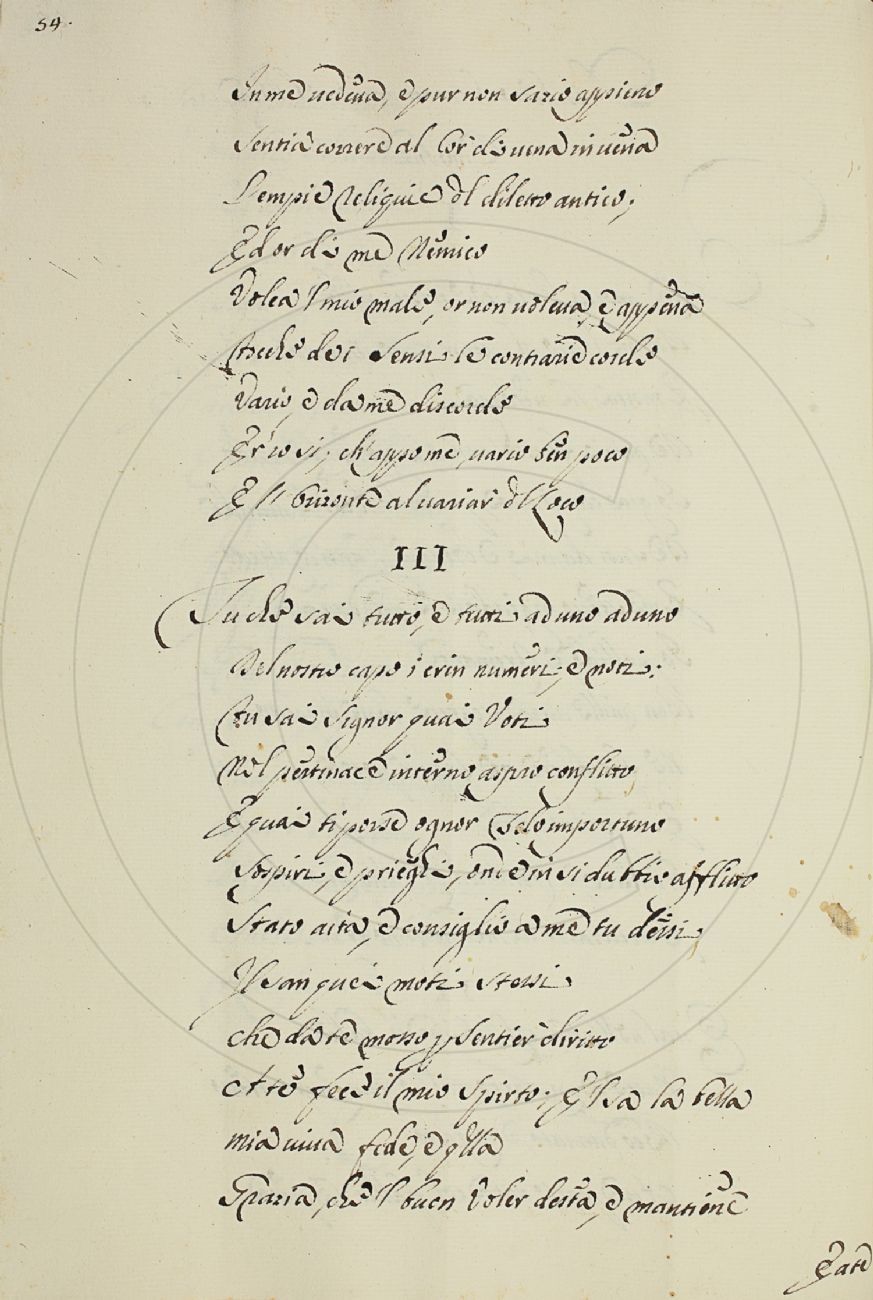 54.
In me uedeua, e pur non sazio appieno
Sentia correre al Cor di uena in uena
L'empie Reliquie dl diletto antico;
Ed or di me Nemico
Volea 'l mio male, or non uoleua, e appena
che dei Sensi le contrarie corde
Vario, e da me discorde
Er' io si; ch' appo me uario ben poco
E 'l al uariar dl Loco
III
Tu che sai tutto, e tutti ad uno ad uno
Del nostro capo i crin numeri, e noti;
Tu sai Signor quai Voti
Nel pertinace interno aspro conflitto,
E quai ti porse ognor Zelo importuno
Sospiri, e prieghi, ond' e in si dubbio afflitto
Stato aita, e consiglio a me tu dessi,
Il san quei moti stessi
che da te mosso p sentier diritto
A te fece il mio Spirto; E 'l sa la bella
mia uiua fede, e qlla
Grazia, che 'l buon Voler desta, e mantiene
E a te